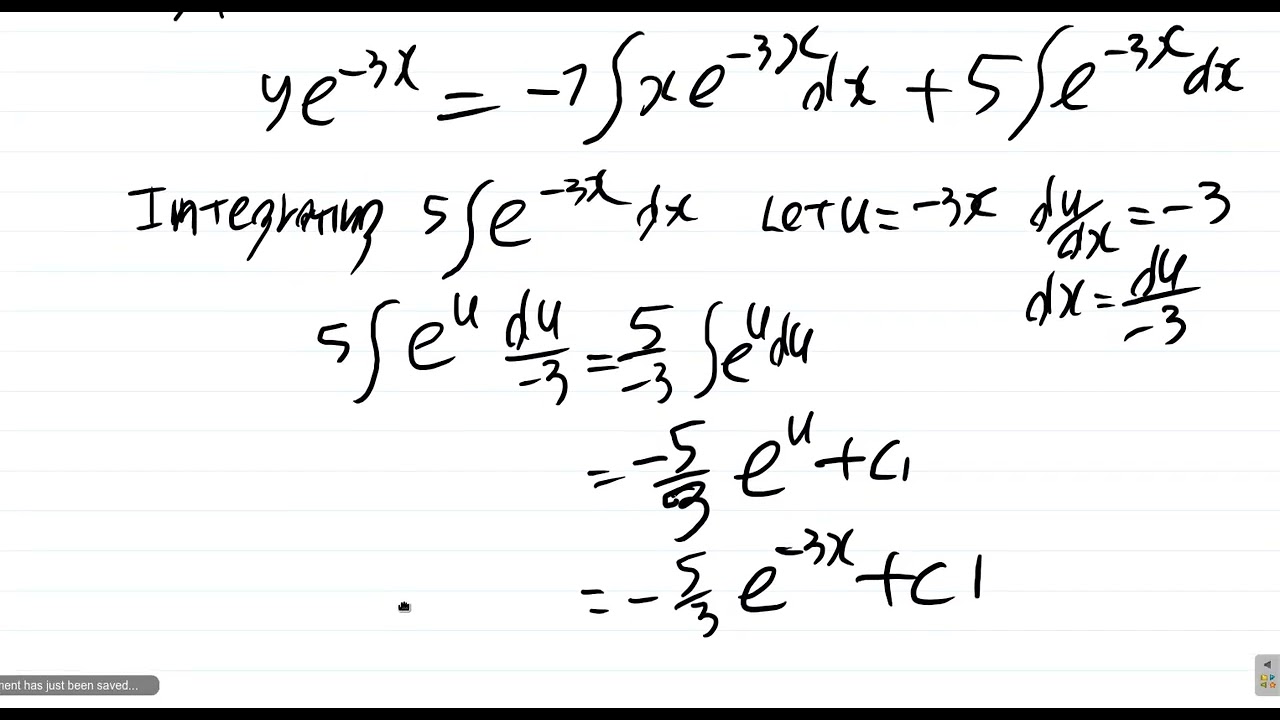 ye^{-3x} = -7∫xe^{-3x}dx + 5∫e^{-3x}dx
Integrating 5∫e^{-3x}dx Let u = -3x du/dx = -3
dx = du/-3
5∫e^u du/-3 = 5/-3 ∫e^u du
= -5/3 e^u + C1
= -5/3 e^{-3x} + C1
ment has just been saved...